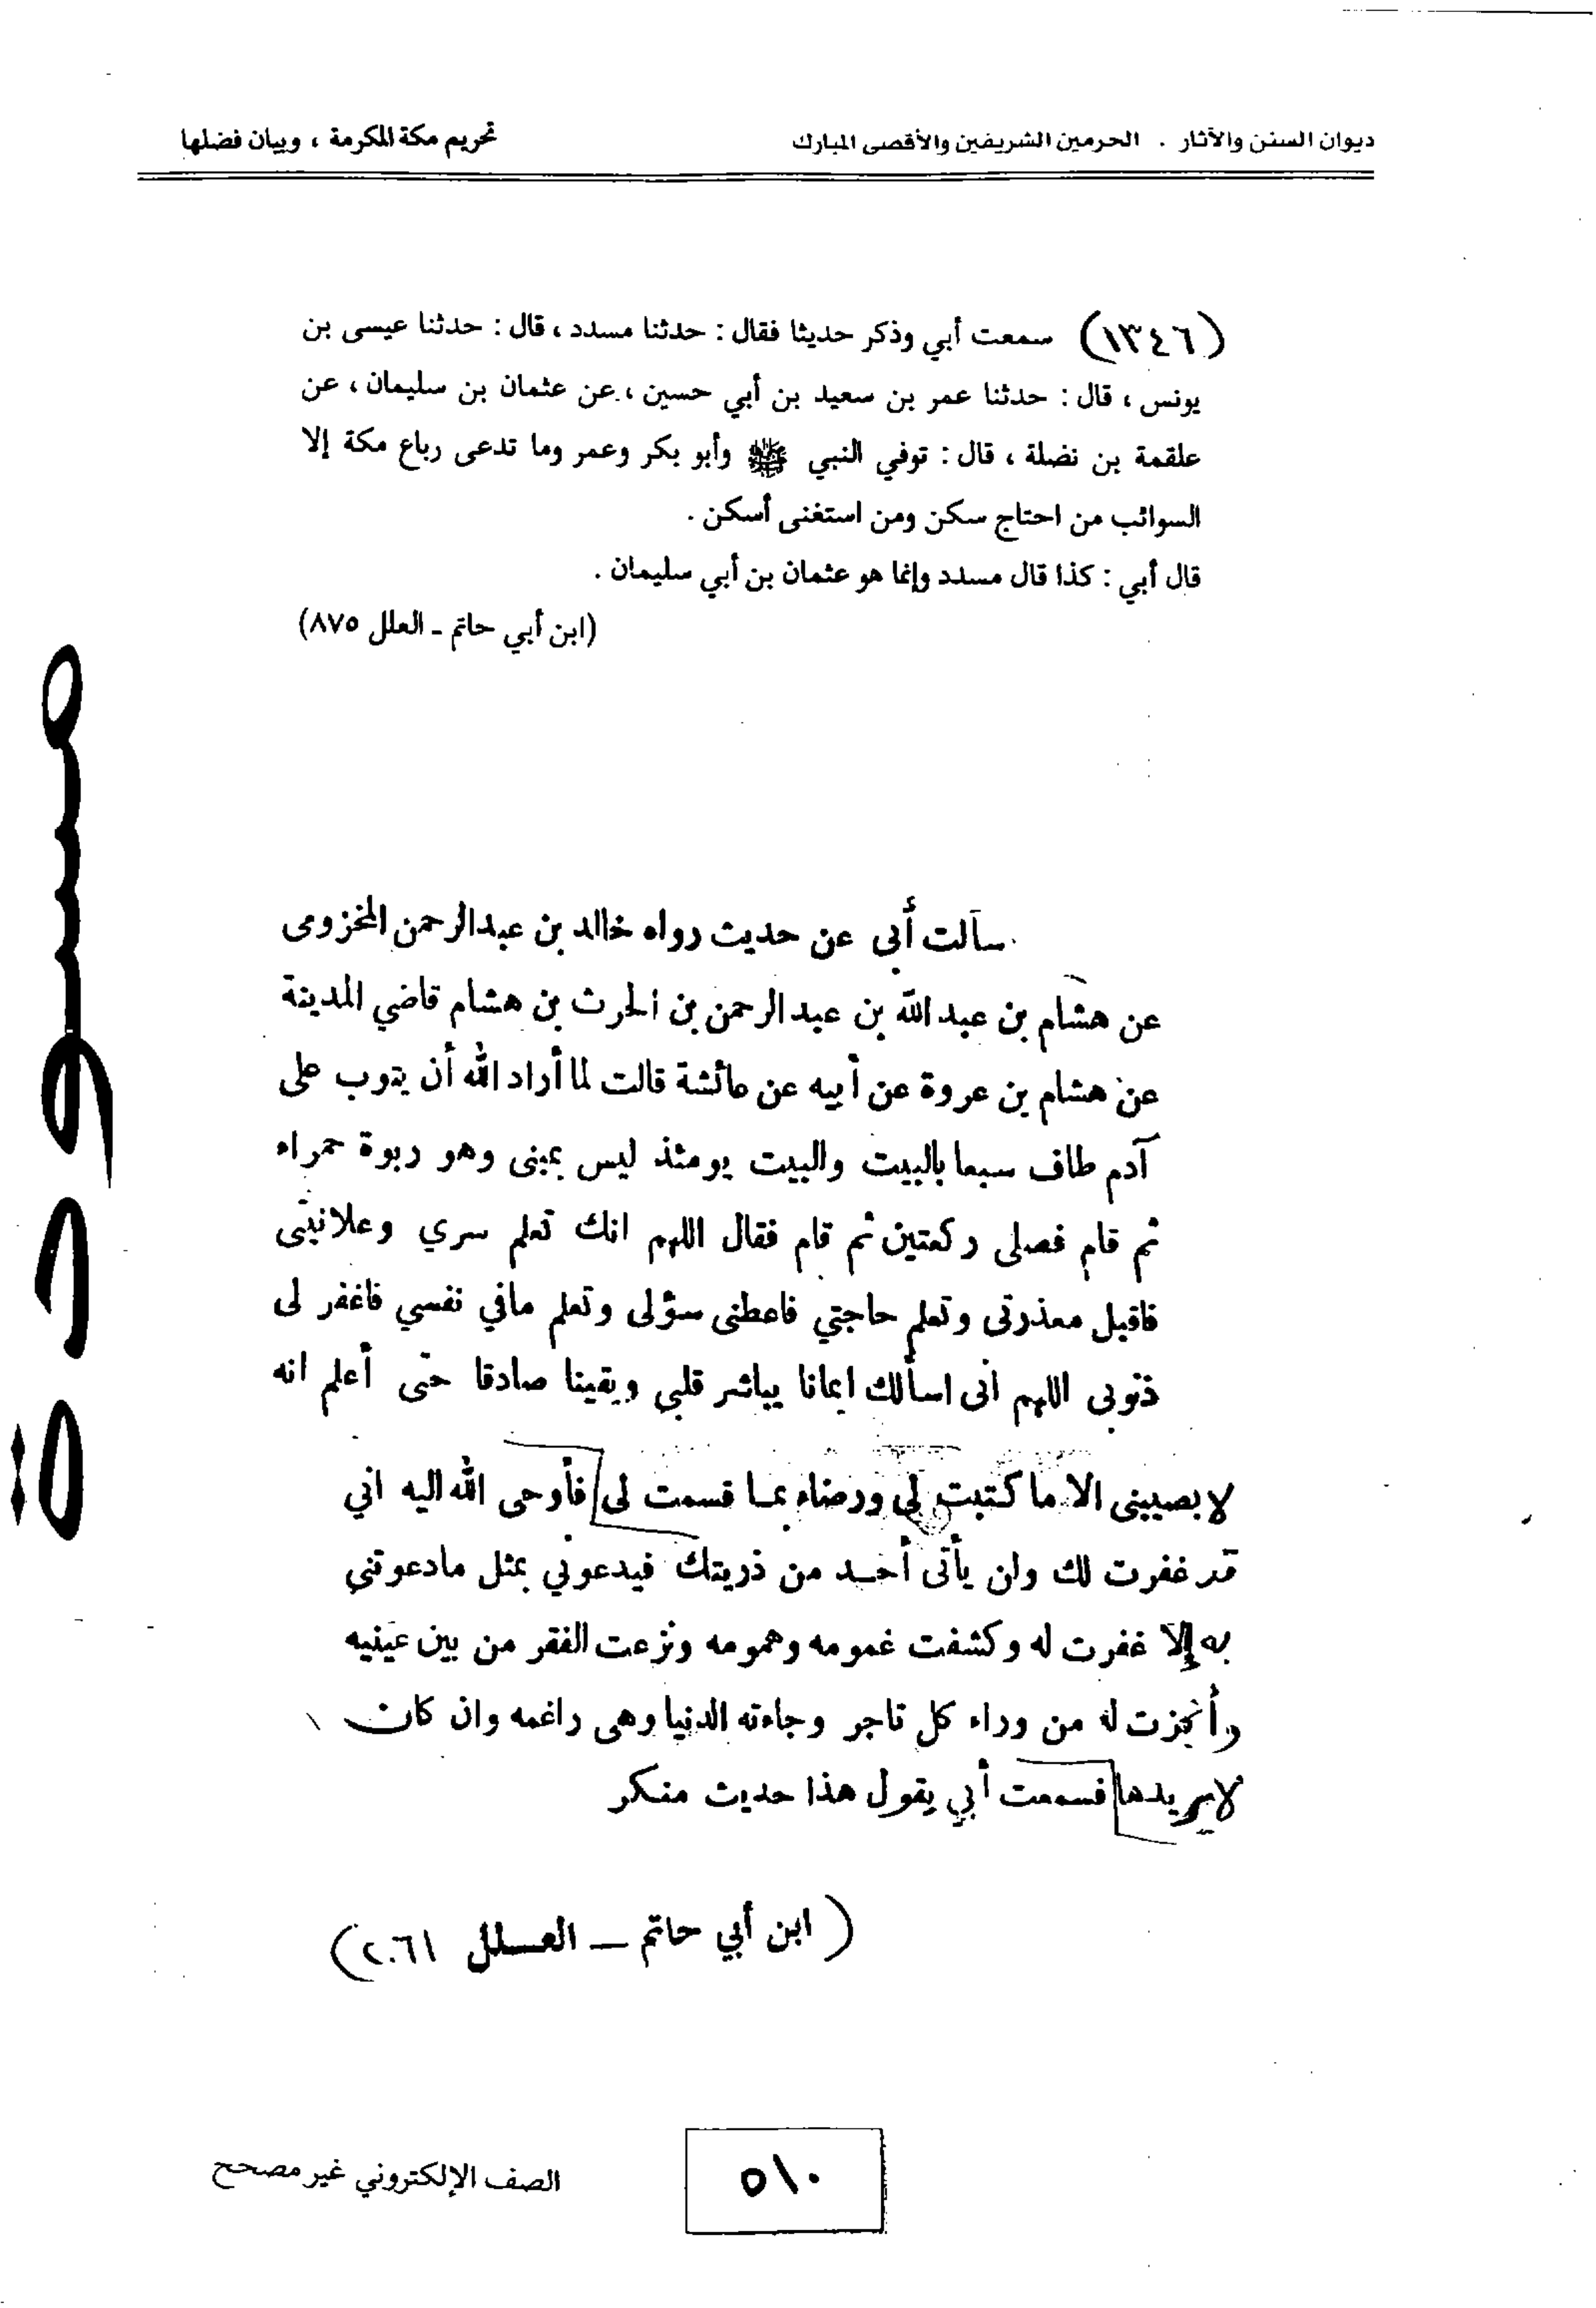 ديوان السنن والآثار . الحرمين الشريفين والأقصى المبارك
تحريم مكة المكرمة ، وبيان فضلها
(١٣٤٦) سمعت أبي وذكر حديثا فقال : حدثنا مسدد ، قال : حدثنا عيسى بن
يونس ، قال : حدثنا عمر بن سعيد بن أبي حسين ، عن عثمان بن سليمان ، عن
علقمة بن نضلة ، قال : توفي النبي ﷺ وأبو بكر وعمر وما تدعى رباع مكة إلا
السوائب من احتاج سكن ومن استغنى أسكن .
قال أبي : كذا قال مسدد وإنما هو عثمان بن أبي سليمان .
(ابن أبي حاتم ـ العلل ٨٧٥)
سألت أبى عن حديث رواه خالد بن عبدالرحمن المخزومى
عن هشام بن عبد الله بن عبد الرحمن بن الحرث بن هشام قاضي المدينة
عن هشام بن عروة عن أبيه عن عائشة قالت لما أراد الله أن يتوب على
آدم طاف سبعا بالبيت والبيت يومئذ ليس بمبنى وهو ربوة حمراء
ثم قام فصلى ركعتين ثم قام فقال اللهم انك تعلم سري وعلانيتى
فاقبل معذرتى وتعلم حاجتي فاعطنى سؤلى وتعلم مافي نفسي فاغفر لى
ذنوبى اللهم انى اسألك ايمانا يباشر قلبي ويقينا صادقا حتى أعلم انه
لا يصيبنى الا ما كتبت لي ورضاء بما قسمت لى فأوحى الله اليه اني
قد غفرت لك وان يأتى أحد من ذريتك فيدعوني بمثل مادعوتني
به إلا غفرت له وكشفت غمومه وهمومه ونزعت الفقر من بين عينيه
وأنجزت له من وراء كل تاجر وجاءته الدنيا وهى راغمه وان كان
لا يريدها فسمعت أبي يقول هذا حديث منكر
( ابن أبي حاتم ــ العلل ٢٠٦١)
مسودة
٥١٠
الصف الإلكتروني غير مصحح